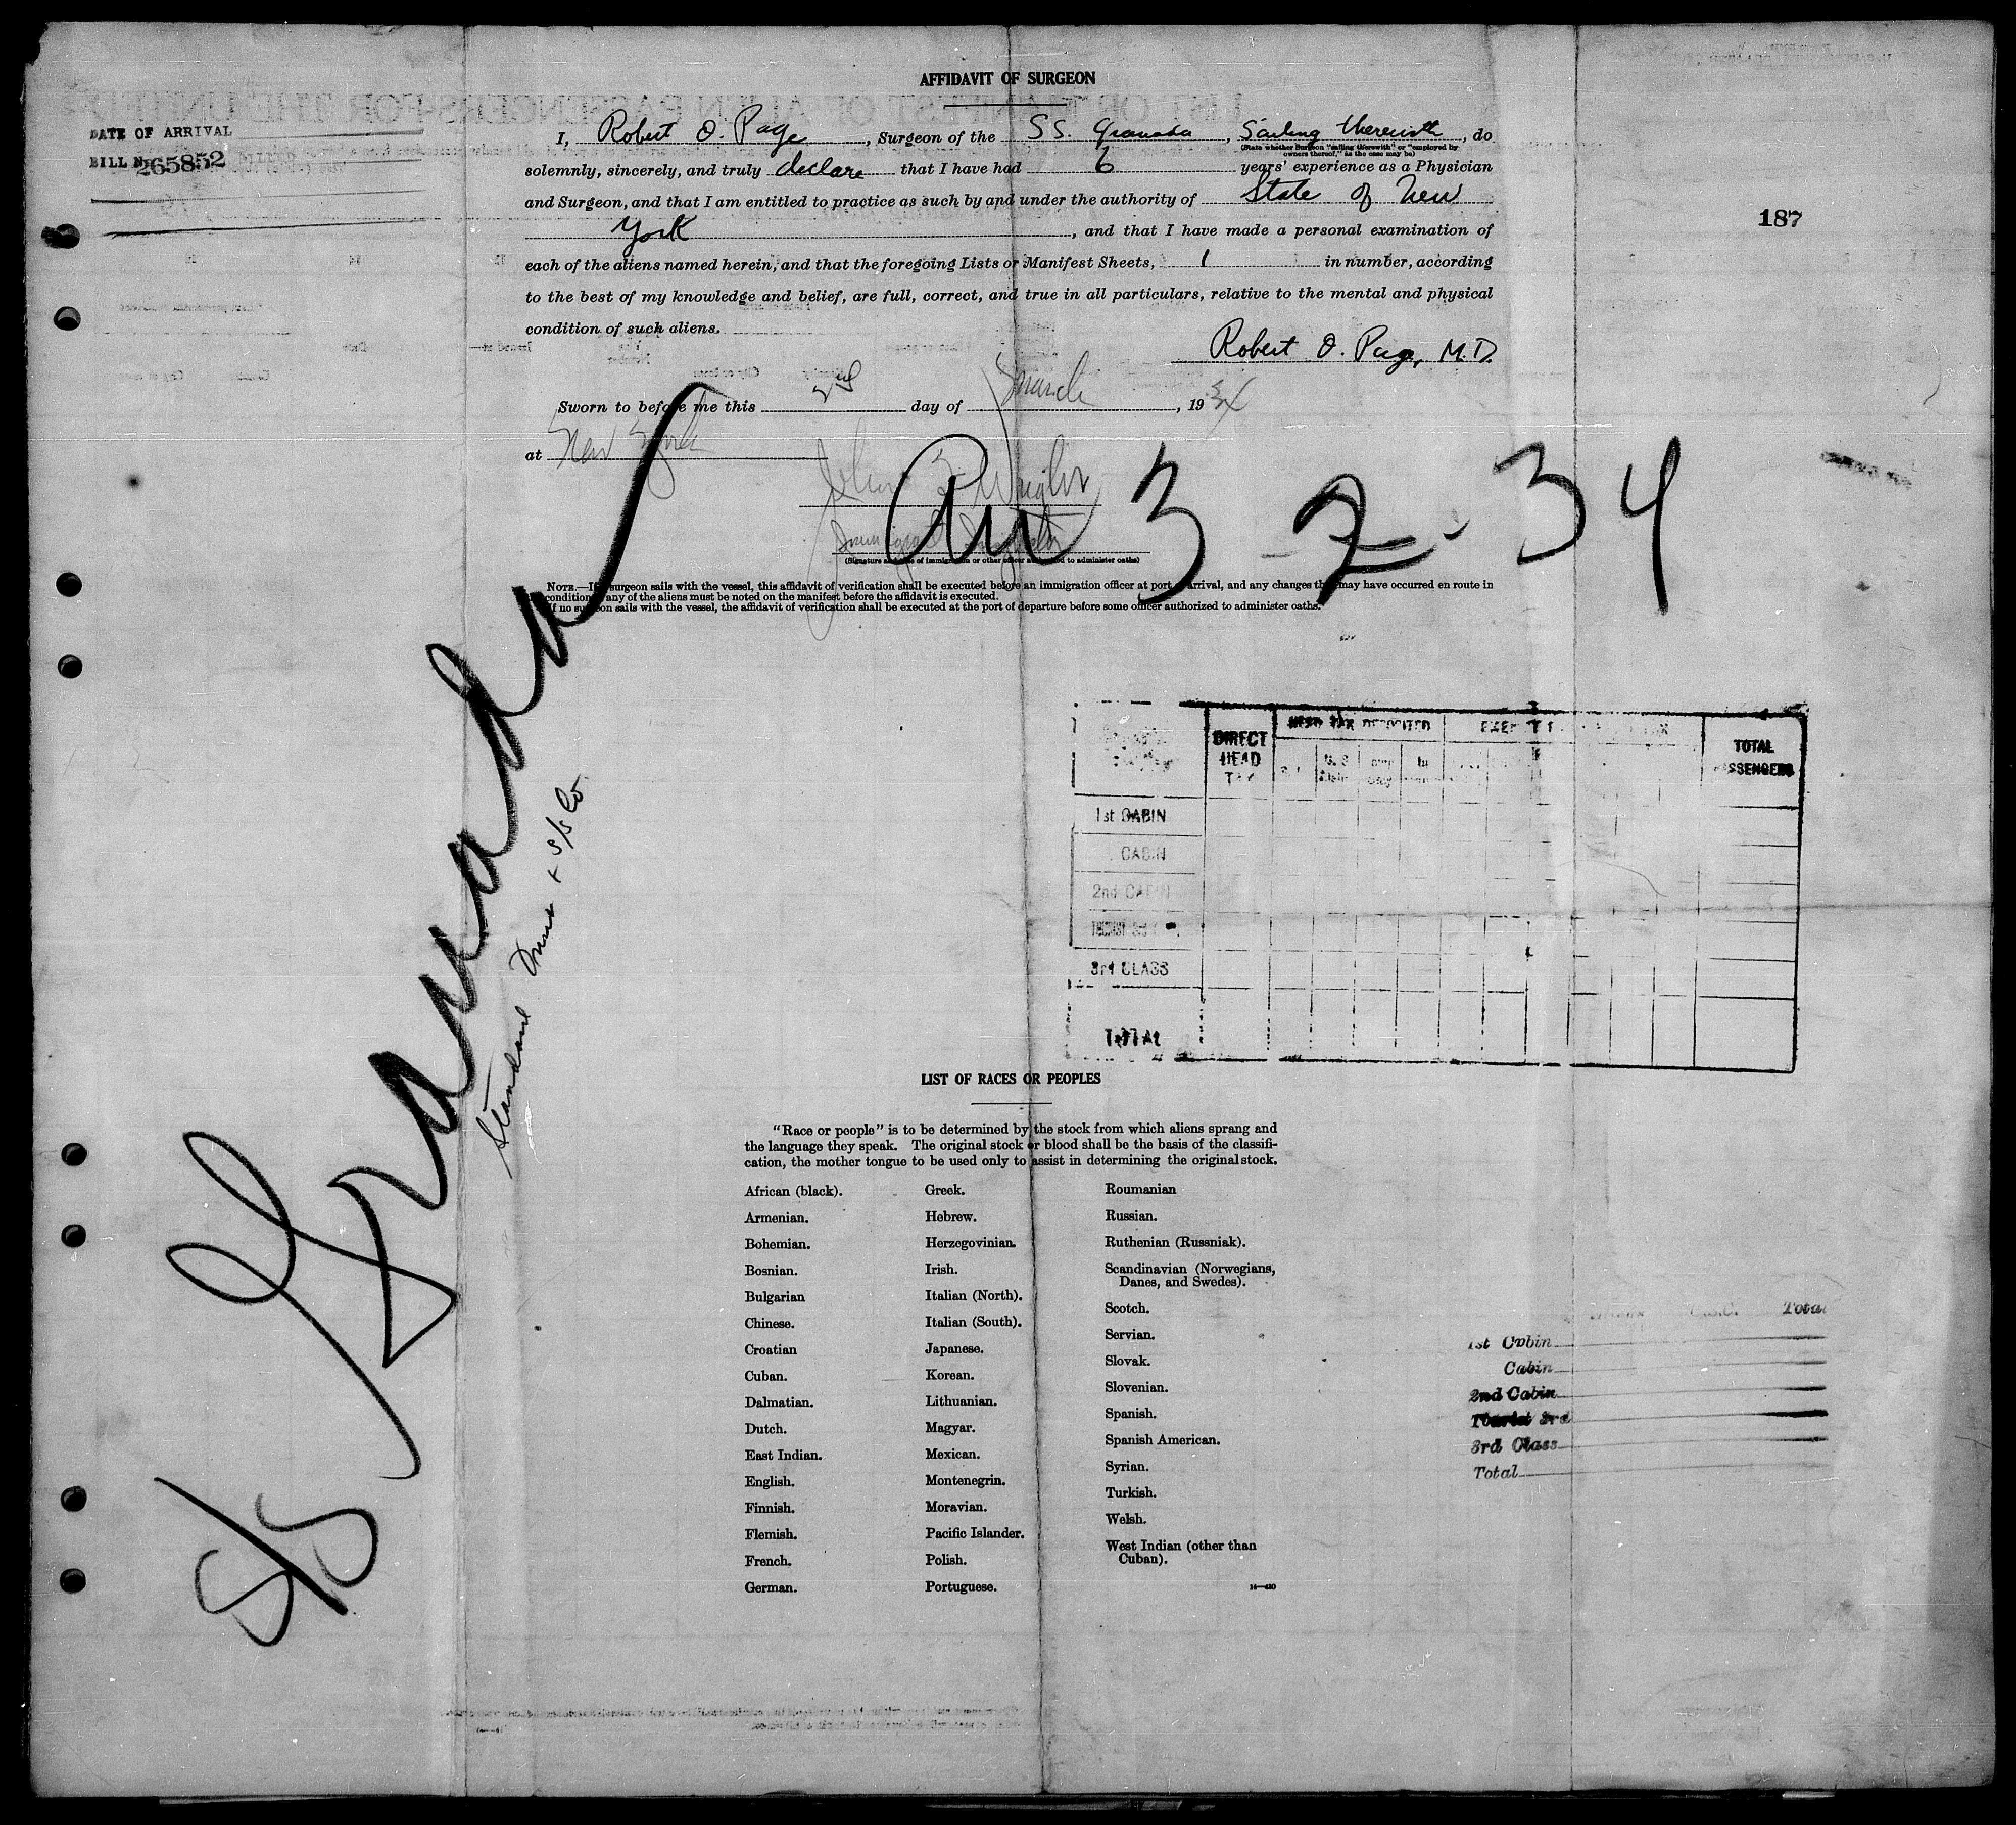 AFFIDAVIT OF SURGEON
DATE OF ARRIVAL
BILL No
265852
I, Robert O. Page, Surgeon of the SS. Granada, Sailing therewith, do
(State whether Surgeon "sailing therewith" or "employed by
owners thereof," as the case may be)
solemnly, sincerely, and truly declare that I have had 6 years' experience as a Physician
and Surgeon, and that I am entitled to practice as such by and under the authority of State of New
York, and that I have made a personal examination of
187
each of the aliens named herein, and that the foregoing Lists or Manifest Sheets, 1 in number, according
to the best of my knowledge and belief, are full, correct, and true in all particulars, relative to the mental and physical
condition of such aliens.
Robert O. Page, M.D.
Sworn to before me this 2nd day of March, 1934
at New York
John Wright
Immigrant Inspector
(Signature and title of immigration or other officer authorized to administer oaths)
3-2-34
NOTE.—If surgeon sails with the vessel, this affidavit of verification shall be executed before an immigration officer at port of arrival, and any changes that may have occurred en route in
condition of any of the aliens must be noted on the manifest before the affidavit is executed.
If no surgeon sails with the vessel, the affidavit of verification shall be executed at the port of departure before some officer authorized to administer oaths.
S/S Granada
Standard & S/S Co
DIRECT HEAD TAX
HEAD TAX DEPOSITED
TOTAL PASSENGERS
1st CABIN
CABIN
2nd CABIN
3rd CLASS
TOTAL
LIST OF RACES OR PEOPLES
"Race or people" is to be determined by the stock from which aliens sprang and
the language they speak. The original stock or blood shall be the basis of the classifi-
cation, the mother tongue to be used only to assist in determining the original stock.
African (black).
Armenian.
Bohemian.
Bosnian.
Bulgarian
Chinese.
Croatian
Cuban.
Dalmatian.
Dutch.
East Indian.
English.
Finnish.
Flemish.
French.
German.
Greek.
Hebrew.
Herzegovinian.
Irish.
Italian (North).
Italian (South).
Japanese.
Korean.
Lithuanian.
Magyar.
Mexican.
Montenegrin.
Moravian.
Pacific Islander.
Polish.
Portuguese.
Roumanian
Russian.
Ruthenian (Russniak).
Scandinavian (Norwegians,
Danes, and Swedes).
Scotch.
Servian.
Slovak.
Slovenian.
Spanish.
Spanish American.
Syrian.
Turkish.
Welsh.
West Indian (other than
Cuban).
14—430
Total
1st Cabin
Cabin
2nd Cabin
Tourist 3rd
3rd Class
Total